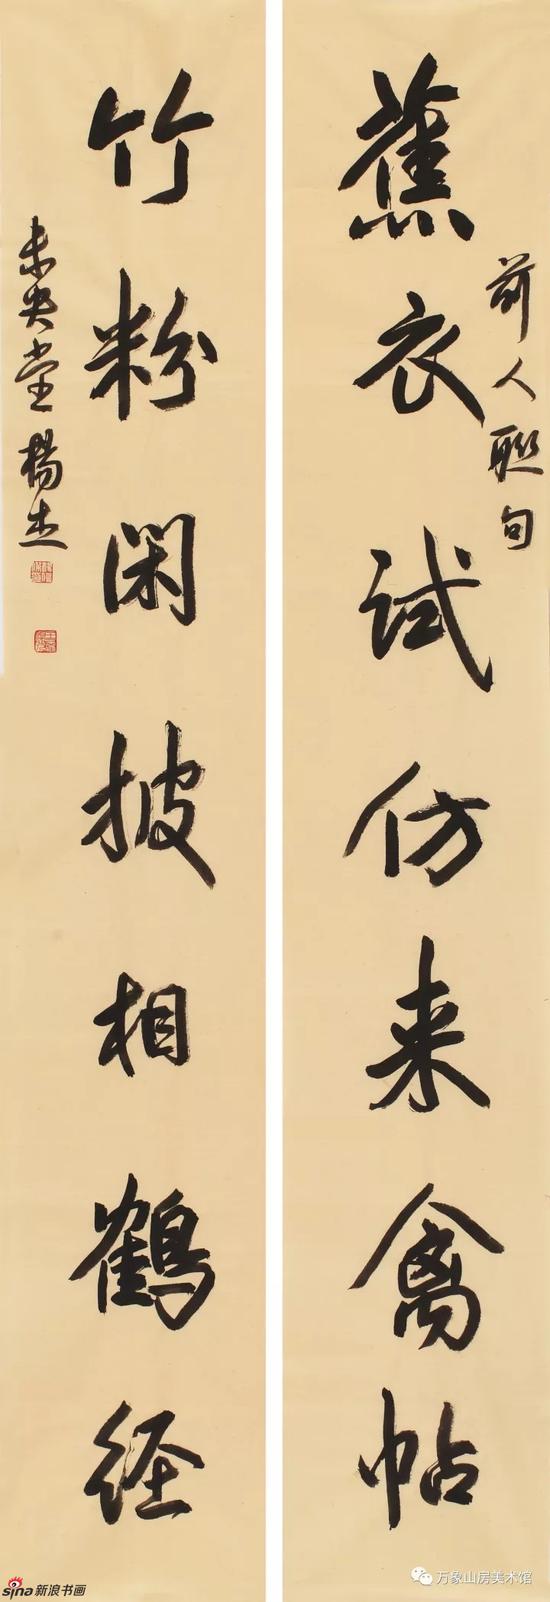 蕉衣試仿来禽帖
前人聯句
竹粉閑披相鶴経
未央堂楊杰
sina新浪书画
万象山房美术馆